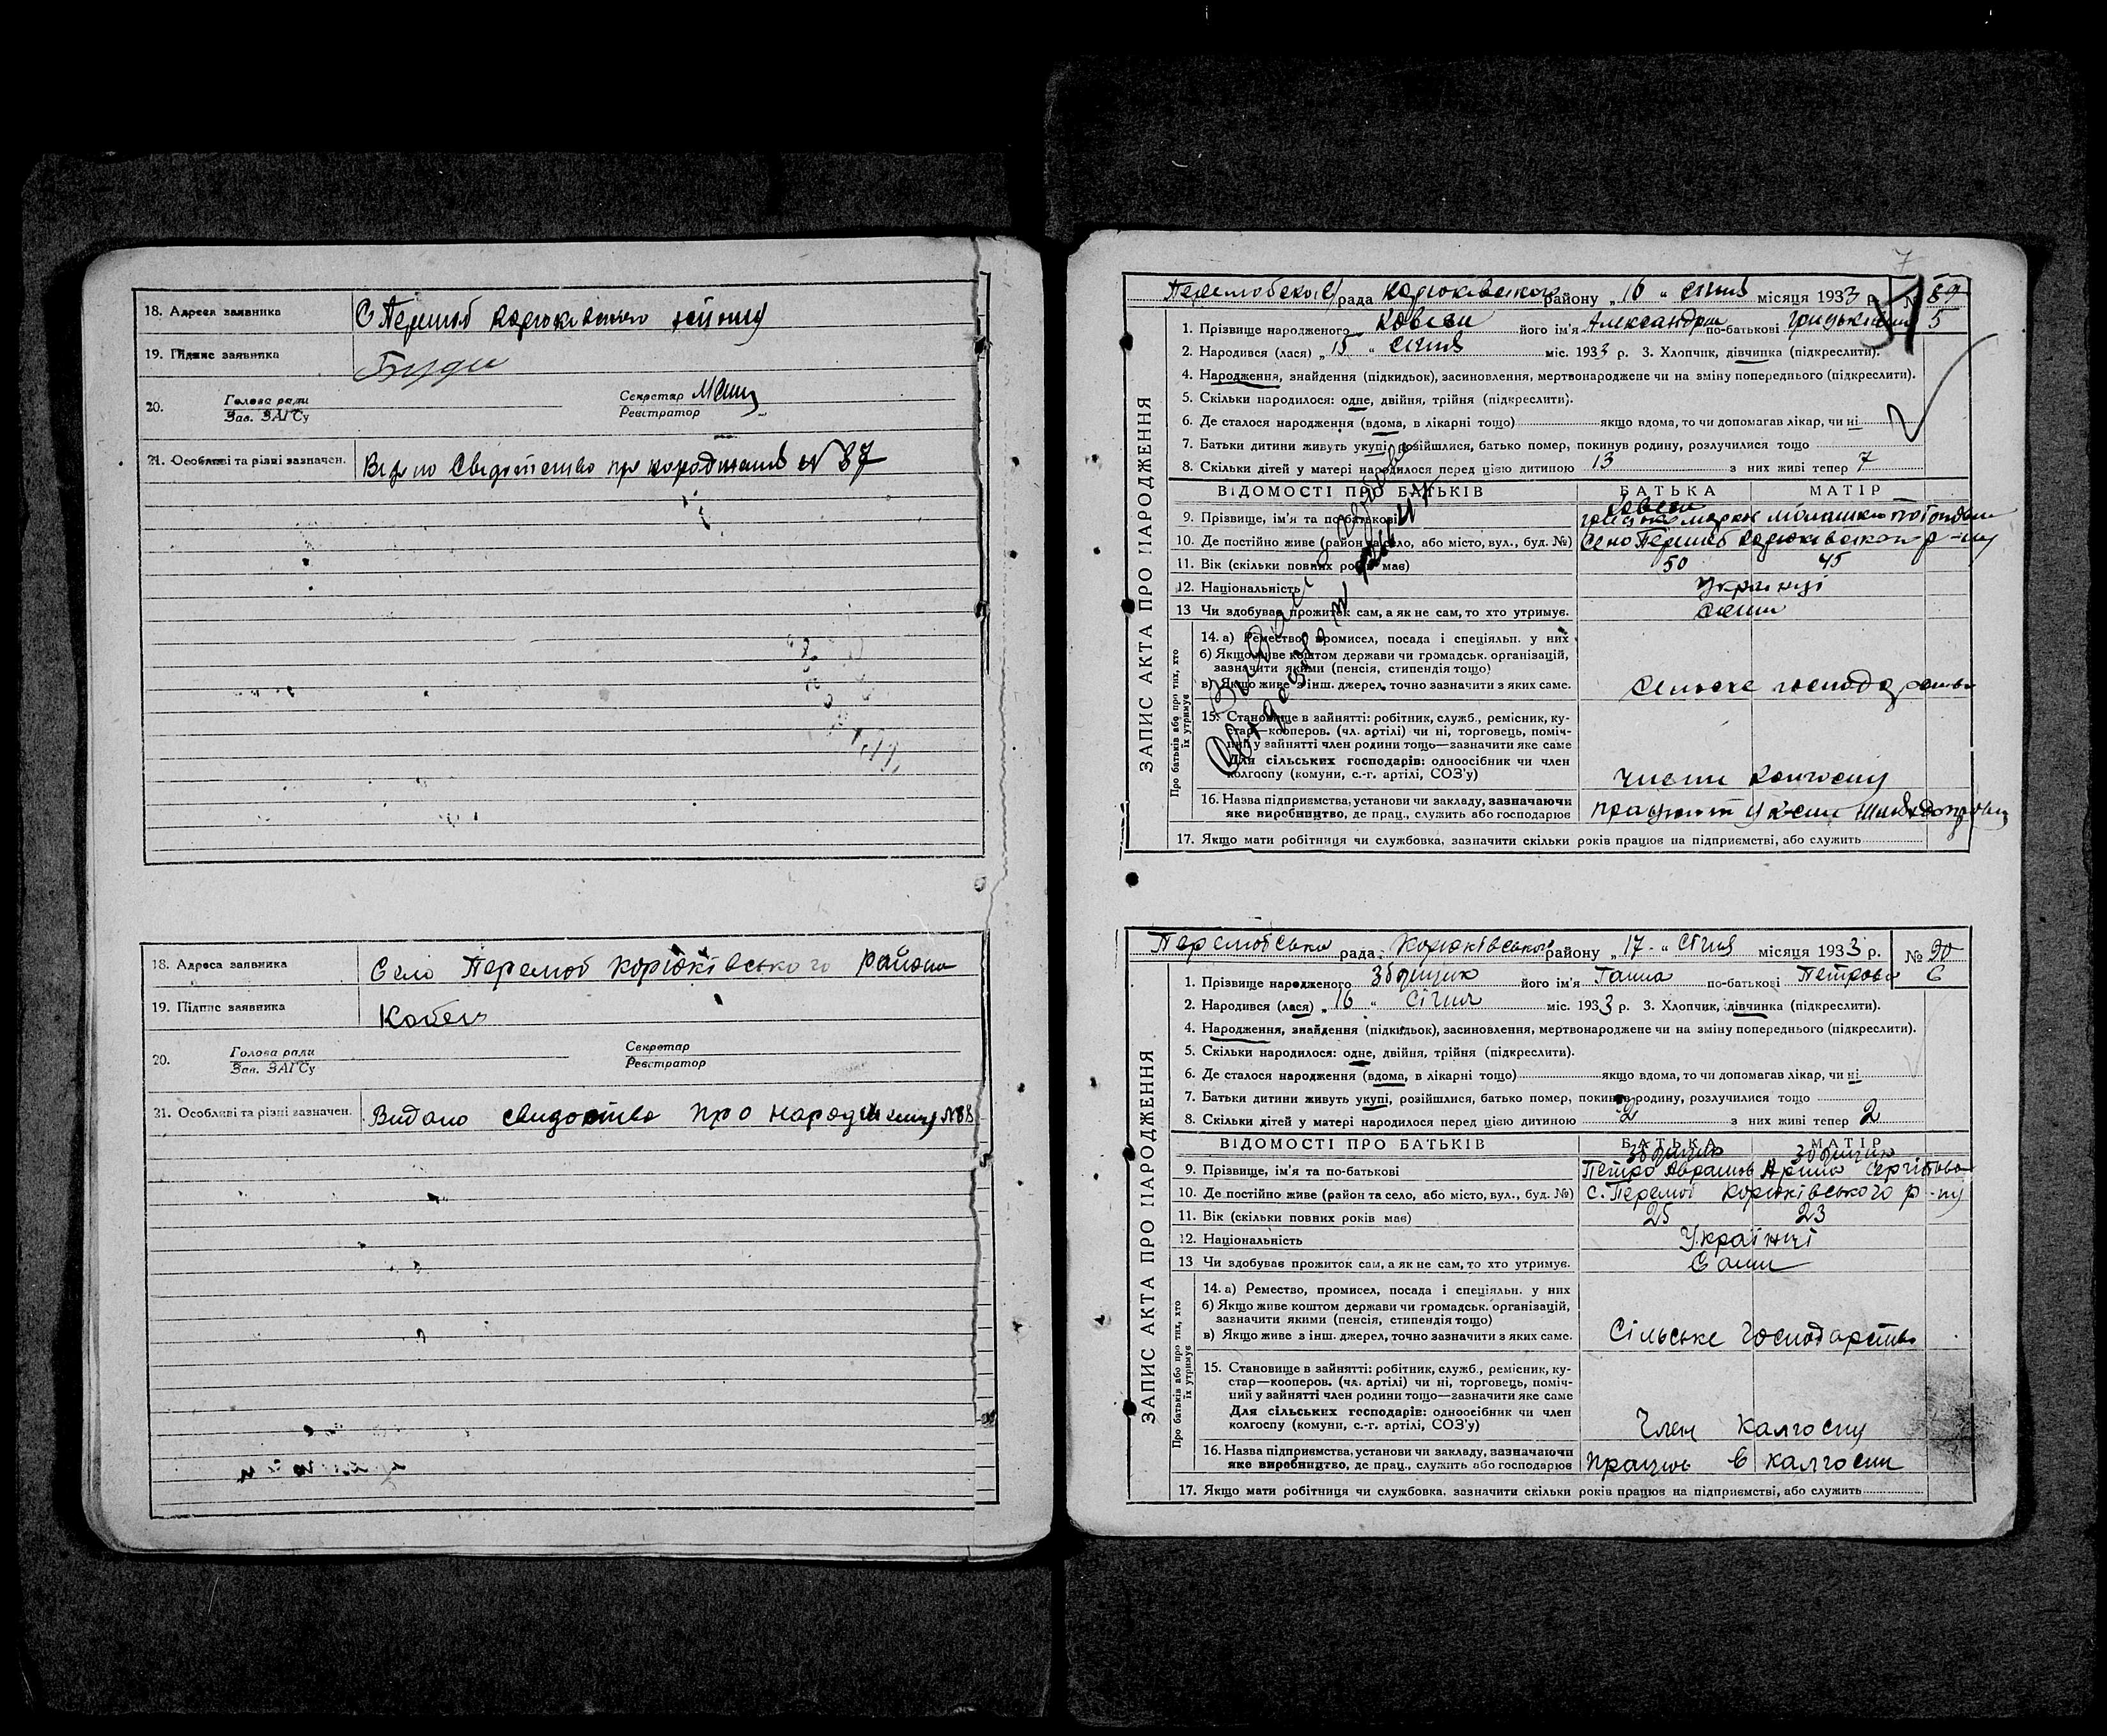 18. Адреса заявника С Перемоб
19. Підпис заявника
20. Голова ради Секретар
Зав. ЗАГСу Реєстратор
21. Особливі та різні зазначен. про народження N 87
18. Адреса заявника Село Перемоб Корюківського району
19. Підпис заявника Кобець
20. Голова ради Секретар
Зав. ЗАГСу Реєстратор
21. Особливі та різні зазначен. Видано свидоство про народженну N 88
рада району „ 16 “ січня місяця 1933 р. № 89
1. Прізвище народженого його ім'я Александра по-батькові 5
2. Народився (лася) „ 15 “ січня міс. 1933 р. 3. Хлопчик, дівчинка (підкреслити).
4. Народження, знайдення (підкидьок), засиновлення, мертвонароджене чи на зміну попереднього (підкреслити).
5. Скільки народилося: одне, двійня, трійня (підкреслити).
6. Де сталося народження (вдома, в лікарні тощо) якщо вдома, то чи допомагав лікар, чи ні
7. Батьки дитини живуть укупі, розійшлися, батько помер, покинув родину, розлучилися тощо
8. Скільки дітей у матері народилося перед цією дитиною 13 з них живі тепер 7
ЗАПИС АКТА ПРО НАРОДЖЕННЯ
ВІДОМОСТІ ПРО БАТЬКІВ БАТЬКА МАТІР
9. Прізвище, ім'я та по-батькові
10. Де постійно живе (район та село, або місто, вул., буд. №) р-ну
11. Вік (скільки повних років має) 50 45
12. Національність Українці
13 Чи здобуває прожиток сам, а як не сам, то хто утримує. Сами
Про батьків або про тих, хто їх утримує
14. а) Ремество, промисел, посада і спеціяльн. у них
б) Якщо живе коштом держави чи громадськ. організацій,
зазначити якими (пенсія, стипендія тощо)
в) Якщо живе з інш. джерел, точно зазначити з яких саме.
15. Становище в зайнятті: робітник, служб., ремісник, ку-
стар—кооперов. (чл. артілі) чи ні, торговець, поміч-
ний у зайнятті член родини тощо—зазначити яке саме
Для сільських господарів: одноосібник чи член
колгоспу (комуни, с.-г. артілі, СОЗ'у)
16. Назва підприємства, установи чи закладу, зазначаючи
яке виробництво, де прац., служить або господарює
17. Якщо мати робітниця чи службовка, зазначити скільки років працює на підприємстві, або служить
Перемобська рада Корюківського району „ 17 “ січня місяця 1933 р. № 90
1. Прізвище народженого Зборщик його ім'я Ганна по-батькові Петрова 6
2. Народився (лася) „ 16 “ січня міс. 1933 р. 3. Хлопчик, дівчинка (підкреслити).
4. Народження, знайдення (підкидьок), засиновлення, мертвонароджене чи на зміну попереднього (підкреслити).
5. Скільки народилося: одне, двійня, трійня (підкреслити).
6. Де сталося народження (вдома, в лікарні тощо) якщо вдома, то чи допомагав лікар, чи ні
7. Батьки дитини живуть укупі, розійшлися, батько помер, покинув родину, розлучилися тощо
8. Скільки дітей у матері народилося перед цією дитиною 2 з них живі тепер 2
ЗАПИС АКТА ПРО НАРОДЖЕННЯ
ВІДОМОСТІ ПРО БАТЬКІВ БАТЬКА МАТІР
Зборщик Зборщик
9. Прізвище, ім'я та по-батькові Петро Аврамов
10. Де постійно живе (район та село, або місто, вул., буд. №) с. Перемоб Корюківського р-ну
11. Вік (скільки повних років має) 25 23
12. Національність Українці
13 Чи здобуває прожиток сам, а як не сам, то хто утримує. Сами
Про батьків або про тих, хто їх утримує
14. а) Ремество, промисел, посада і спеціяльн. у них
б) Якщо живе коштом держави чи громадськ. організацій,
зазначити якими (пенсія, стипендія тощо)
в) Якщо живе з інш. джерел, точно зазначити з яких саме. Сільське господарство
15. Становище в зайнятті: робітник, служб., ремісник, ку-
стар—кооперов. (чл. артілі) чи ні, торговець, поміч-
ний у зайнятті член родини тощо—зазначити яке саме
Для сільських господарів: одноосібник чи член
колгоспу (комуни, с.-г. артілі, СОЗ'у) Член калгоспу
16. Назва підприємства, установи чи закладу, зазначаючи
яке виробництво, де прац., служить або господарює в калгоспи
17. Якщо мати робітниця чи службовка, зазначити скільки років працює на підприємстві, або служить